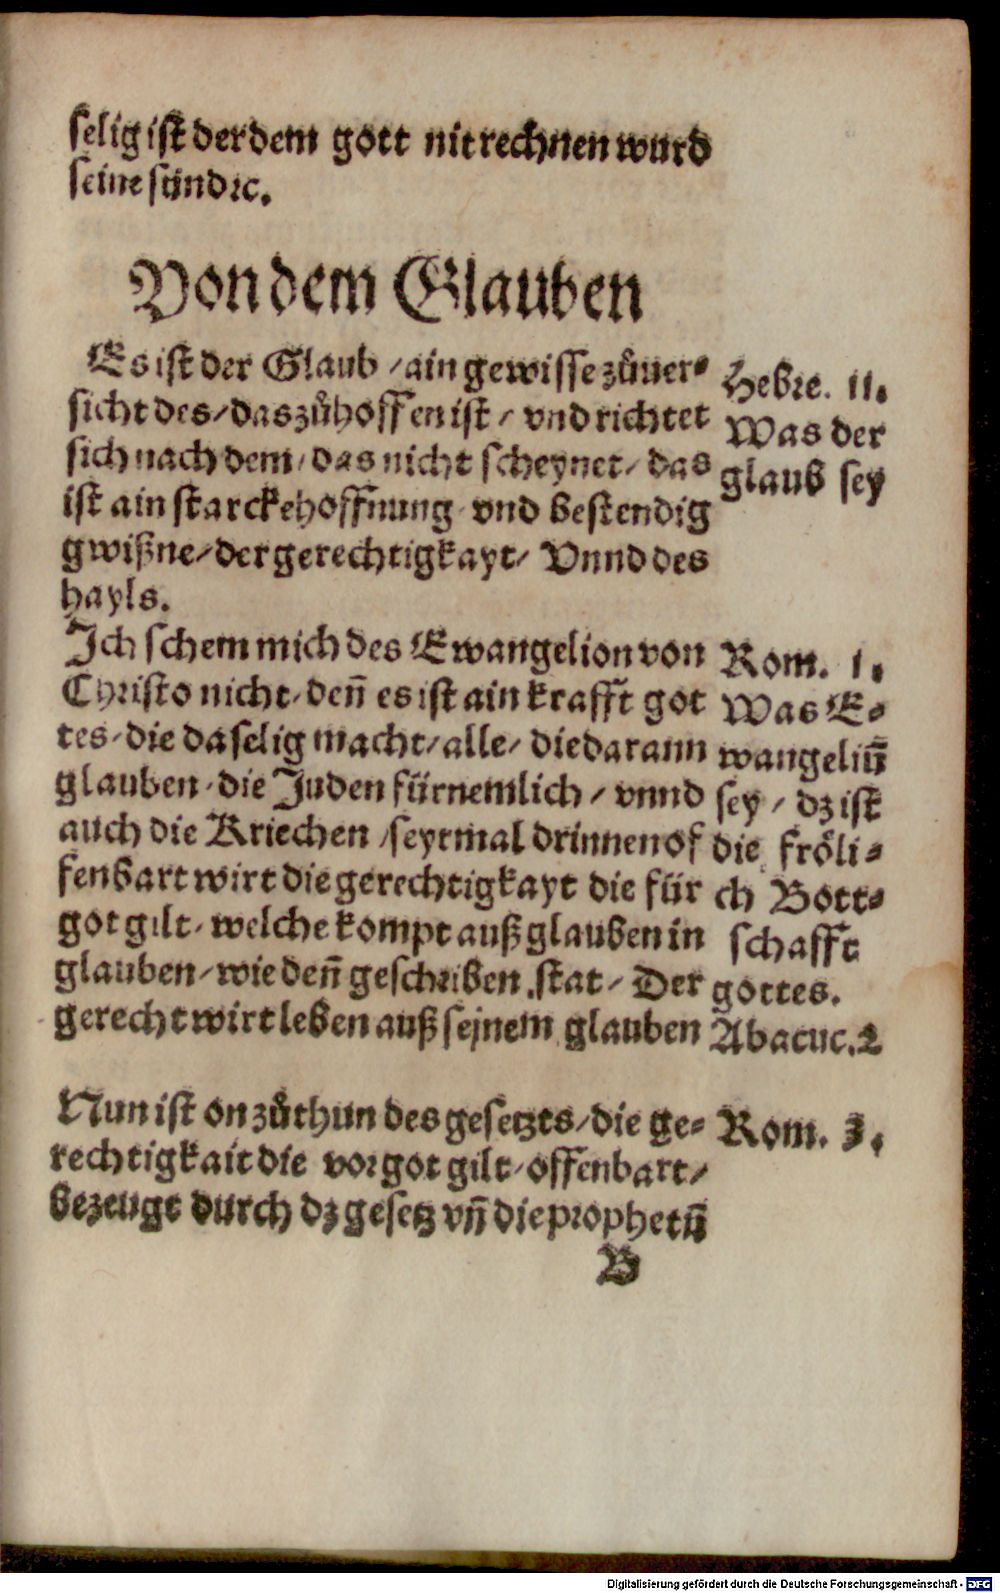 selig ist der dem gott nit rechnen wurd
seine sünd ꝛc.
Von dem Glauben
Es ist der Glaub / ain gewisse zůuer⸗
sicht des / das zůhoffen ist / vnd richtet
sich nach dem / das nicht scheynet / das
ist ain starcke hoffnung vnd bestendig
gwißne / der gerechtigkayt / Vnnd des
hayls.
Hebre. 11.
Was der
glaub sey
Ich schem mich des Ewangelion von
Christo nicht / deñ es ist ain krafft got
tes / die da selig macht / alle / die darann
glauben / die Juden fürnemlich / vnnd
auch die Kriechen / seytmal drinnen of
fenbart wirt die gerechtigkayt die für
got gilt / welche kompt auß glauben in
glauben / wie deñ geschriben stat / Der
gerecht wirt leben auß seinem glauben
Rom. 1.
Was E⸗
wangeliũ
sey / dz ist
die fröli⸗
ch Bott⸗
schafft
gottes.
Abacuc. 2
Nun ist on zůthun des gesetzts / die ge⸗
rechtigkait die vor got gilt / offenbart /
bezeugt durch dz gesetz vñ die prophetẽ
Rom. 3.
B
Digitalisierung gefördert durch die Deutsche Forschungsgemeinschaft - DFG